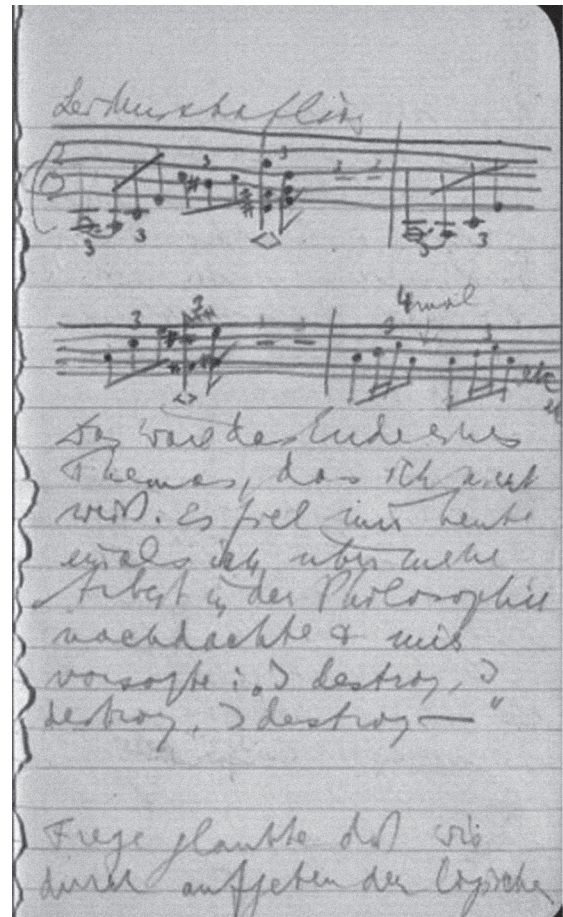 Leidenschaftlich
3 3 3 3 3 3
3 3 4mal
3 3 etc
Das wäre das Ende eines
Themas, das ich nicht
weiß. Es fiel mir heute
ein als ich über meine
Arbeit in der Philosophie
nachdachte & mir
vorsagte: „I destroy, I
destroy, I destroy—“
Frege glaubte daß wir
durch aufgeben der logischen